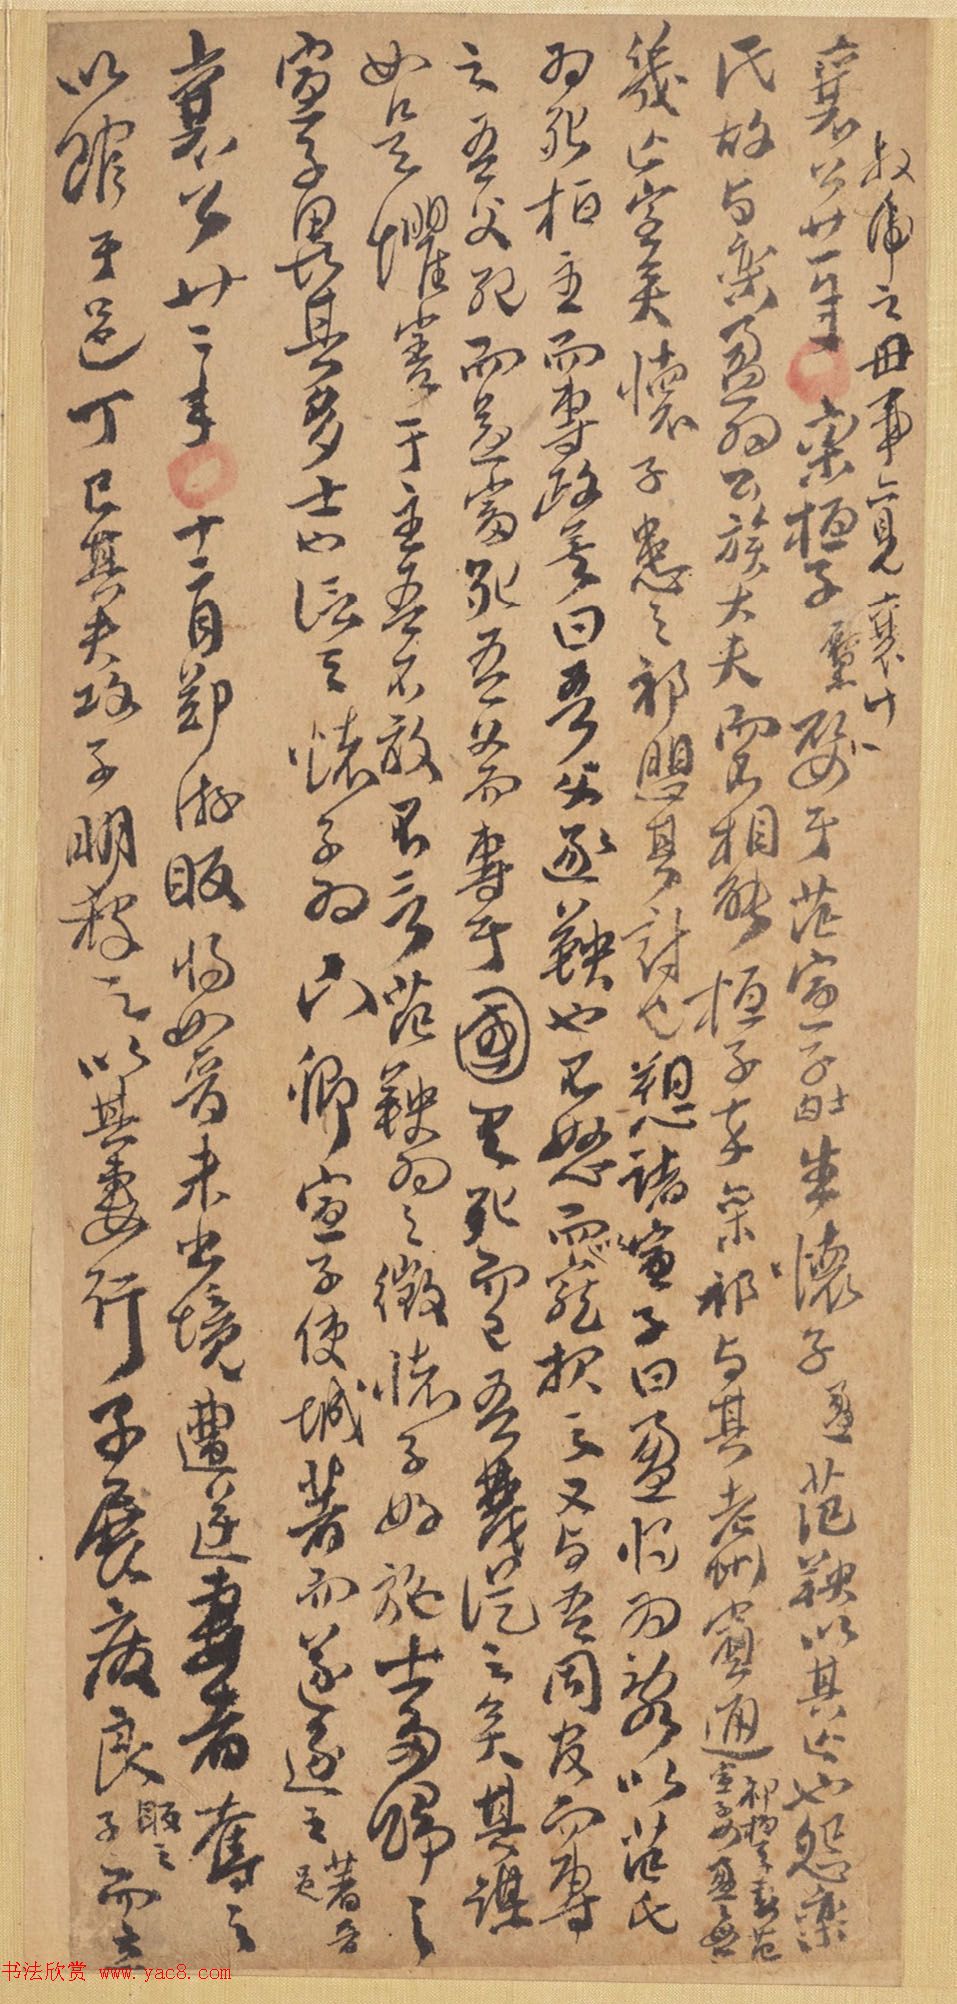 叔虎之母事亦見襄廿一
襄公廿一年 欒桓子黶娶于范宣子生懷子盈范鞅以其亡也怨欒
氏故与欒盈為公族大夫而不相能桓子卒欒祁与其老州賓通祁桓子妻范宣子女盈母
幾亡室矣懷子患之祁懼其討也愬諸宣子曰盈將為亂以范氏
為死桓主而專政矣曰吾父逐鞅也不怒而以寵報之又与吾同官而專
之吾父死而益富死吾父而專于國有死而已吾蔑從之矣其謀
如是懼害于主吾不敢不言范鞅為之徵懷子好施士多歸之
宣子畏其多士也信之懷子為下卿宣子使城著而遂逐之著晉邑
襄公廿二年 十二月鄭游眅將如晉未出境遭逆妻者奪之
以館于邑丁巳其夫攻子明殺之以其妻行子展廢良眅之子而立
书法欣赏 www.yac8.com